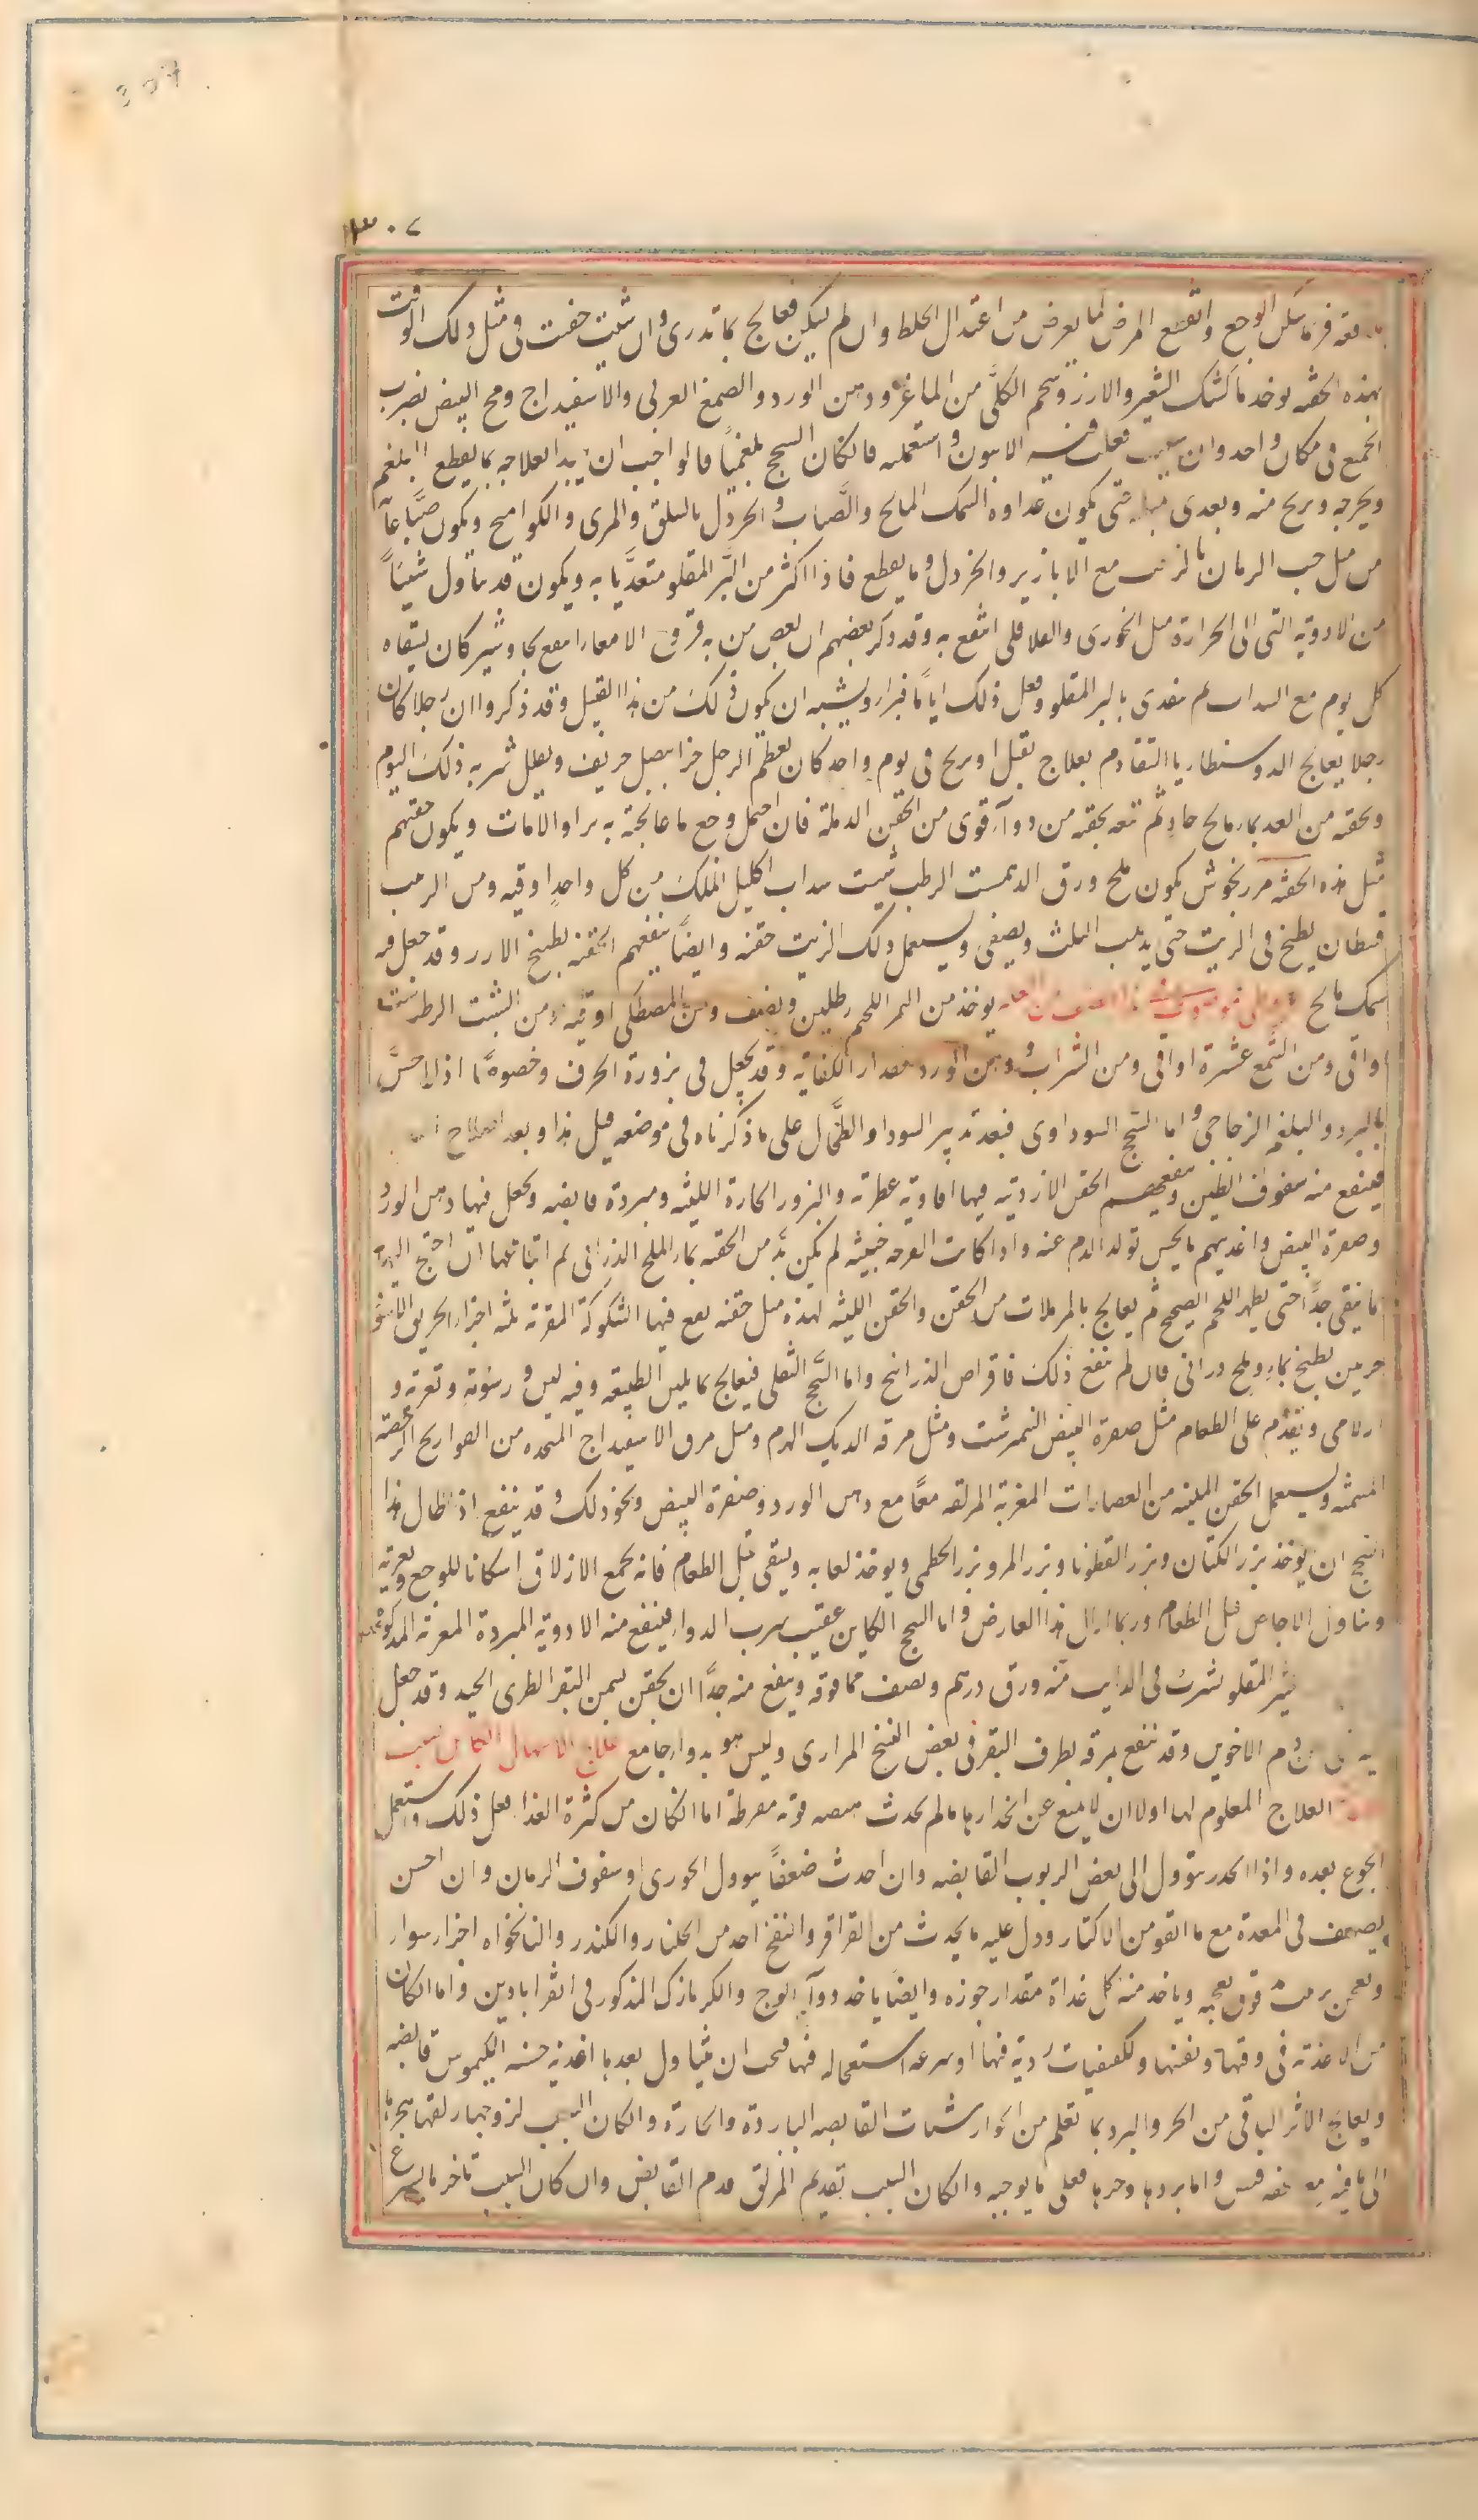 307
٣٠٧
فربما سكن الوجع وانقطع المرض لما يعرض من اعتدال الخلط وان لم يكن فعالج بما تدري وان شئت حقنت في مثل ذلك الوقت
بهذه الحقنه يوخذ ماء كشك الشعير والارز وشحم الكلى من الماعز ودهن الورد والصمغ العربي والاسفيداج ومح البيض يضرب
الجميع في مكان واحد وان شيت جعلت فيه الافيون واستعمله فان كان السحج بلغميا فالواجب ان يبدا بعلاجه بما يقطع البلغم
ويخرجه ويريح منه ويغدى حتى يكون غداوه السمك المالح والصباب والخردل بالسلق والمرى والكواميخ ويكون صباغا
من مثل حب الرمان بالزبيب مع الابازير والخردل وما يقطع فاذا اكثر من البر المقلو متغديا به ويكون قد تناول شيئا
من الادويه التى الى الحرارة مثل الخوزى والفلافلى انتفع به وقد ذكر بعضهم ان بعض من به قروح الامعاء انتفع بجاوشير كان يسقاه
كل يوم مع السداب ثم يغدى بالبر المقلو وفعل ذلك اياما فبرا ويشبه ان يكون ذلك من هذا القبيل وقد ذكروا ان رجلا كان
رجلا يعالج الدوسنطاريا المتقادم بعلاج يقتل او يريح في يوم واحد كان يطعم الرجل خبزا ببصل حريف ويقلل شربه ذلك اليوم
ويحقنه من الغد بماء مالح حار ثم يتبعه بحقنه من دواء قوى من الحقن الدملة فان احتمل وجع ما عالجته به برا والا مات ويكون حقنهم
مثل هذه الحقنه مرزنجوش كمون ملح ورق الدهمست الرطب شبت سداب اكليل الملك من كل واحد اوقيه ومن الزيت
قسطان يطبخ في الزيت حتى يذهب الثلث ويصفى ويستعمل ذلك الزيت حقنه وايضا ينفعهم الحقنه بطبيخ الارز وقد جعل فيه
سمك مالح يوخذ من التمر اللحيم رطلين ونصف ومن المصطكى اوقيه ومن الشبت الرطب ست
اواقى ومن الشمع عشرة اواقى ومن الشراب ودهن الورد مقدار الكفاية وقد يجعل في بزورة الحرف وخصوصا اذا احس
بالبرد والبلغم الزجاجى واما السحج السوداوى فبعد تدبير السودا والطحال على ما ذكرناه في موضعه قبل هذا وبعد اصلاح
فينفع منه سفوف الطين وينفعهم الحقن الارزية فيها افاوية عطرة والبزور الحارة اللينه ومبردة قابضه ويجعل فيها دهن الورد
وصفرة البيض واغذيتهم ما يحسن تولد الدم عنه واذا كانت القرحه خبيثه لم يكن بد من الحقنه بماء الملح الدرانى ثم اتباعها ان احتيج اليه
ما ينقى جدا حتى يظهر اللحم الصحيح ثم يعالج بالمدملات من الحقن والحقن اللينه لهذه مثل حقنه يقع فيها الشكوكة المقرنة ثلثه اجزاء الخربق الاسود
جزءين يطبخ بماء وملح درانى فان لم ينفع ذلك فاقراص الذرانيخ واما السحج الثفلى فيعالج بما يلين الطبيعه وفيه لين ورطوبة وتغرية و
ازلاق ويقدم على الطعام مثل صفرة البيض النمرشت ومثل مرقه الديك الهرم ومثل مرق الاسفيداج المتخذه من الفراريج الرخصه
المسمنه ويستعمل الحقن الملينه من العصارات المغرية المزلقه معا مع دهن الورد وصفرة البيض ونحو ذلك وقد ينفع اذا طال هذا
السحج ان يوخذ بزر الكتان وبزر القطونا وبزر المرو وبزر الخطمى ويوخذ لعابه ويسقى قبل الطعام فانه يجمع الازلاق اسكانا للوجع وتغرية
وتناول الاجاص قبل الطعام وربما ازال هذا العارض واما السحج الكاين عقيب شرب الدواء فينفع منه الادوية المبردة المغرية المذكورة
المقلو شربت في الرايب منه ورق درهم ونصف مما فوقه وينفع منه جدا ان يحقن بسمن البقر الطرى الجيد وقد جعل
دم الاخوين وقد ينفع بمرقه بطرف البقر في بعض السحج المرارى وليس هو بدواء جامع علاج الاسهال الكائن بسبب
العلاج المعلوم لها اولا ان لا يمنع عن انحدارها ما لم يحدث منه قوة مفرطة اما الكان من كثرة الغذا فعل ذلك واستعمل
الجوع بعده واذا انحدر يتناول الى بعض الربوب القابضه وان احدث ضعفا يتناول الخوزى وسفوف الرمان وان احس
بضعف في المعدة مع ما اتفق من الاكثار ودل عليه ما يحدث من القراقر والنفخ اخذ من الجلنار والكندر والنانخواه اجزاء سواء
ويعجن بزبيب ويعجنه وياخذ منه كل غداة مقدار جوزه وايضا ياخذ دواء الوج والكزمازك المذكور في القراباذين واما الكان
من الاغذيه في وقتها وتعفنها ولكيفيات ردية فيها او سرعه استحاله فيها فيجب ان يتناول بعدها اغذيه حسنه الكيموس قابضه
ويعالج الاثر الباقى من الحر والبرد بما تعلم من الجوارشنات القابضه الباردة والحارة والكان السبب لزوجتها وزلقها هجرها
الى ما فيه مع خفه قبض واما بردها وحرها فعلى ما يوجبه والكان السبب تقديم المزلق قدم القابض وان كان السبب تاخر ما يسرع